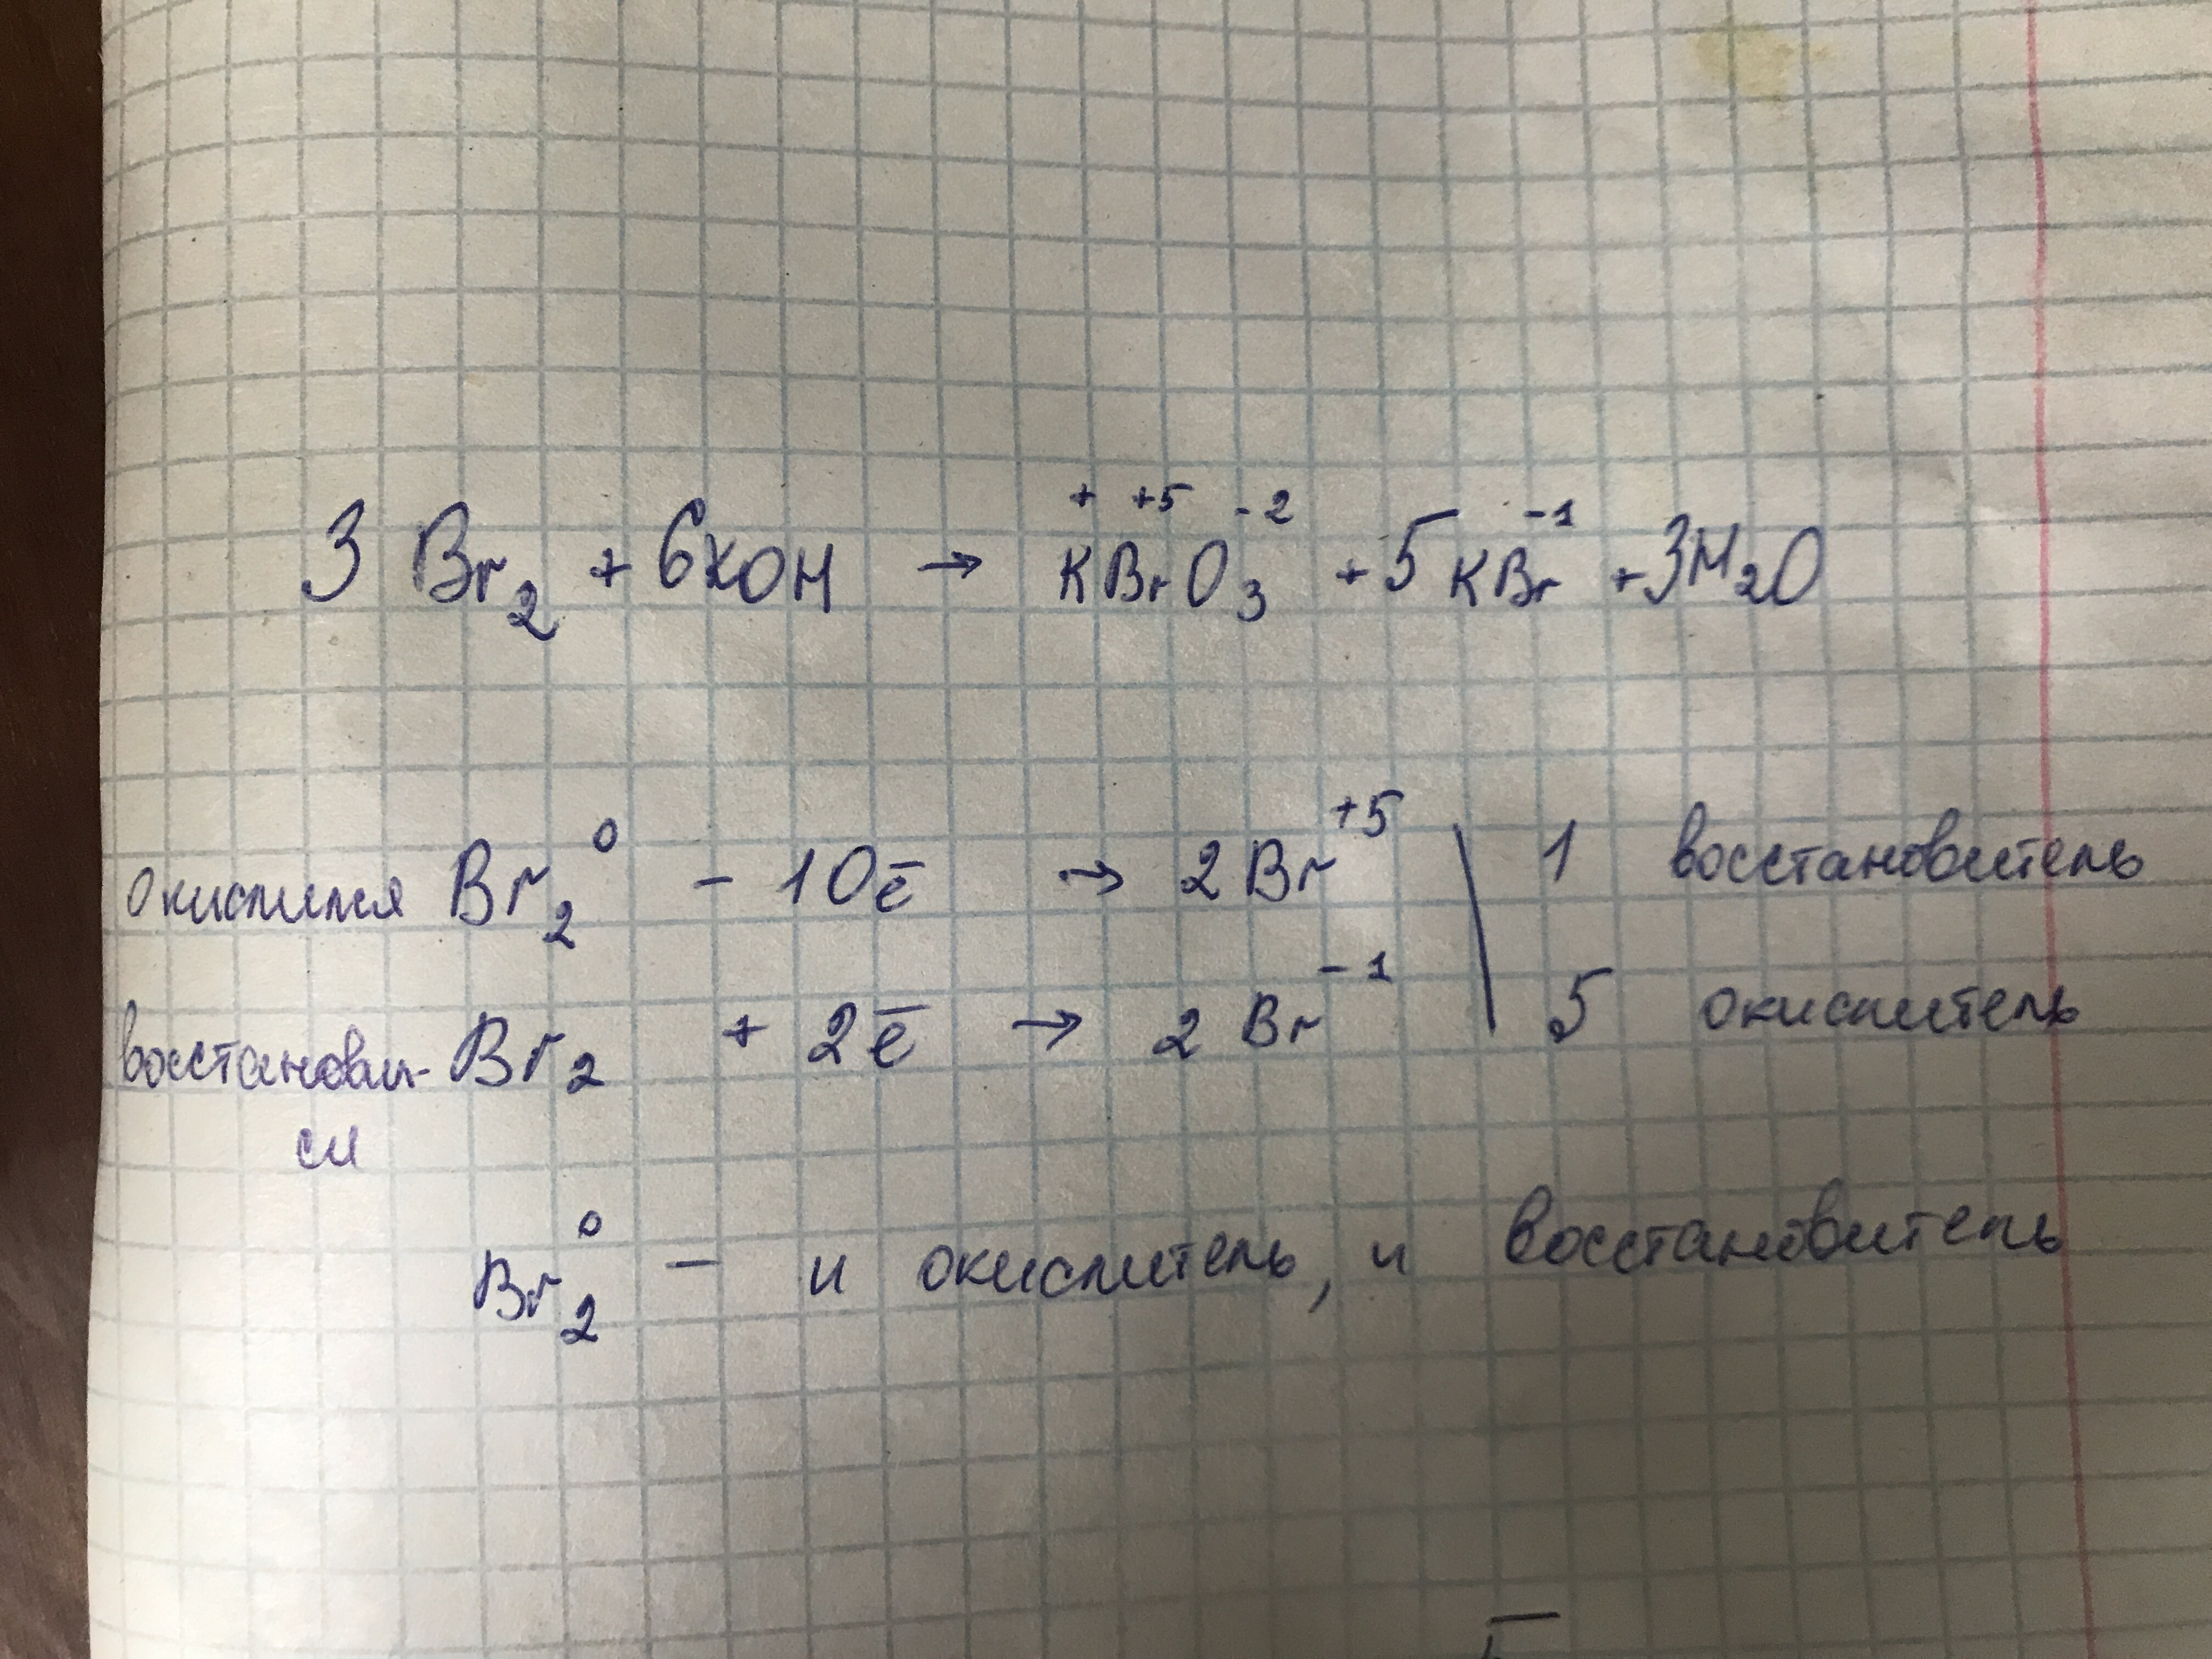 3 Br₂ + 6KOH → K⁺Br⁺⁵O₃⁻² + 5KBr⁻¹ + 3H₂O
окислился Br₂⁰ - 10ē → 2Br⁺⁵ | 1 восстановитель
восстанови- Br₂ + 2ē → 2Br⁻¹ | 5 окислитель
Br₂⁰ - и окислитель, и восстановитель